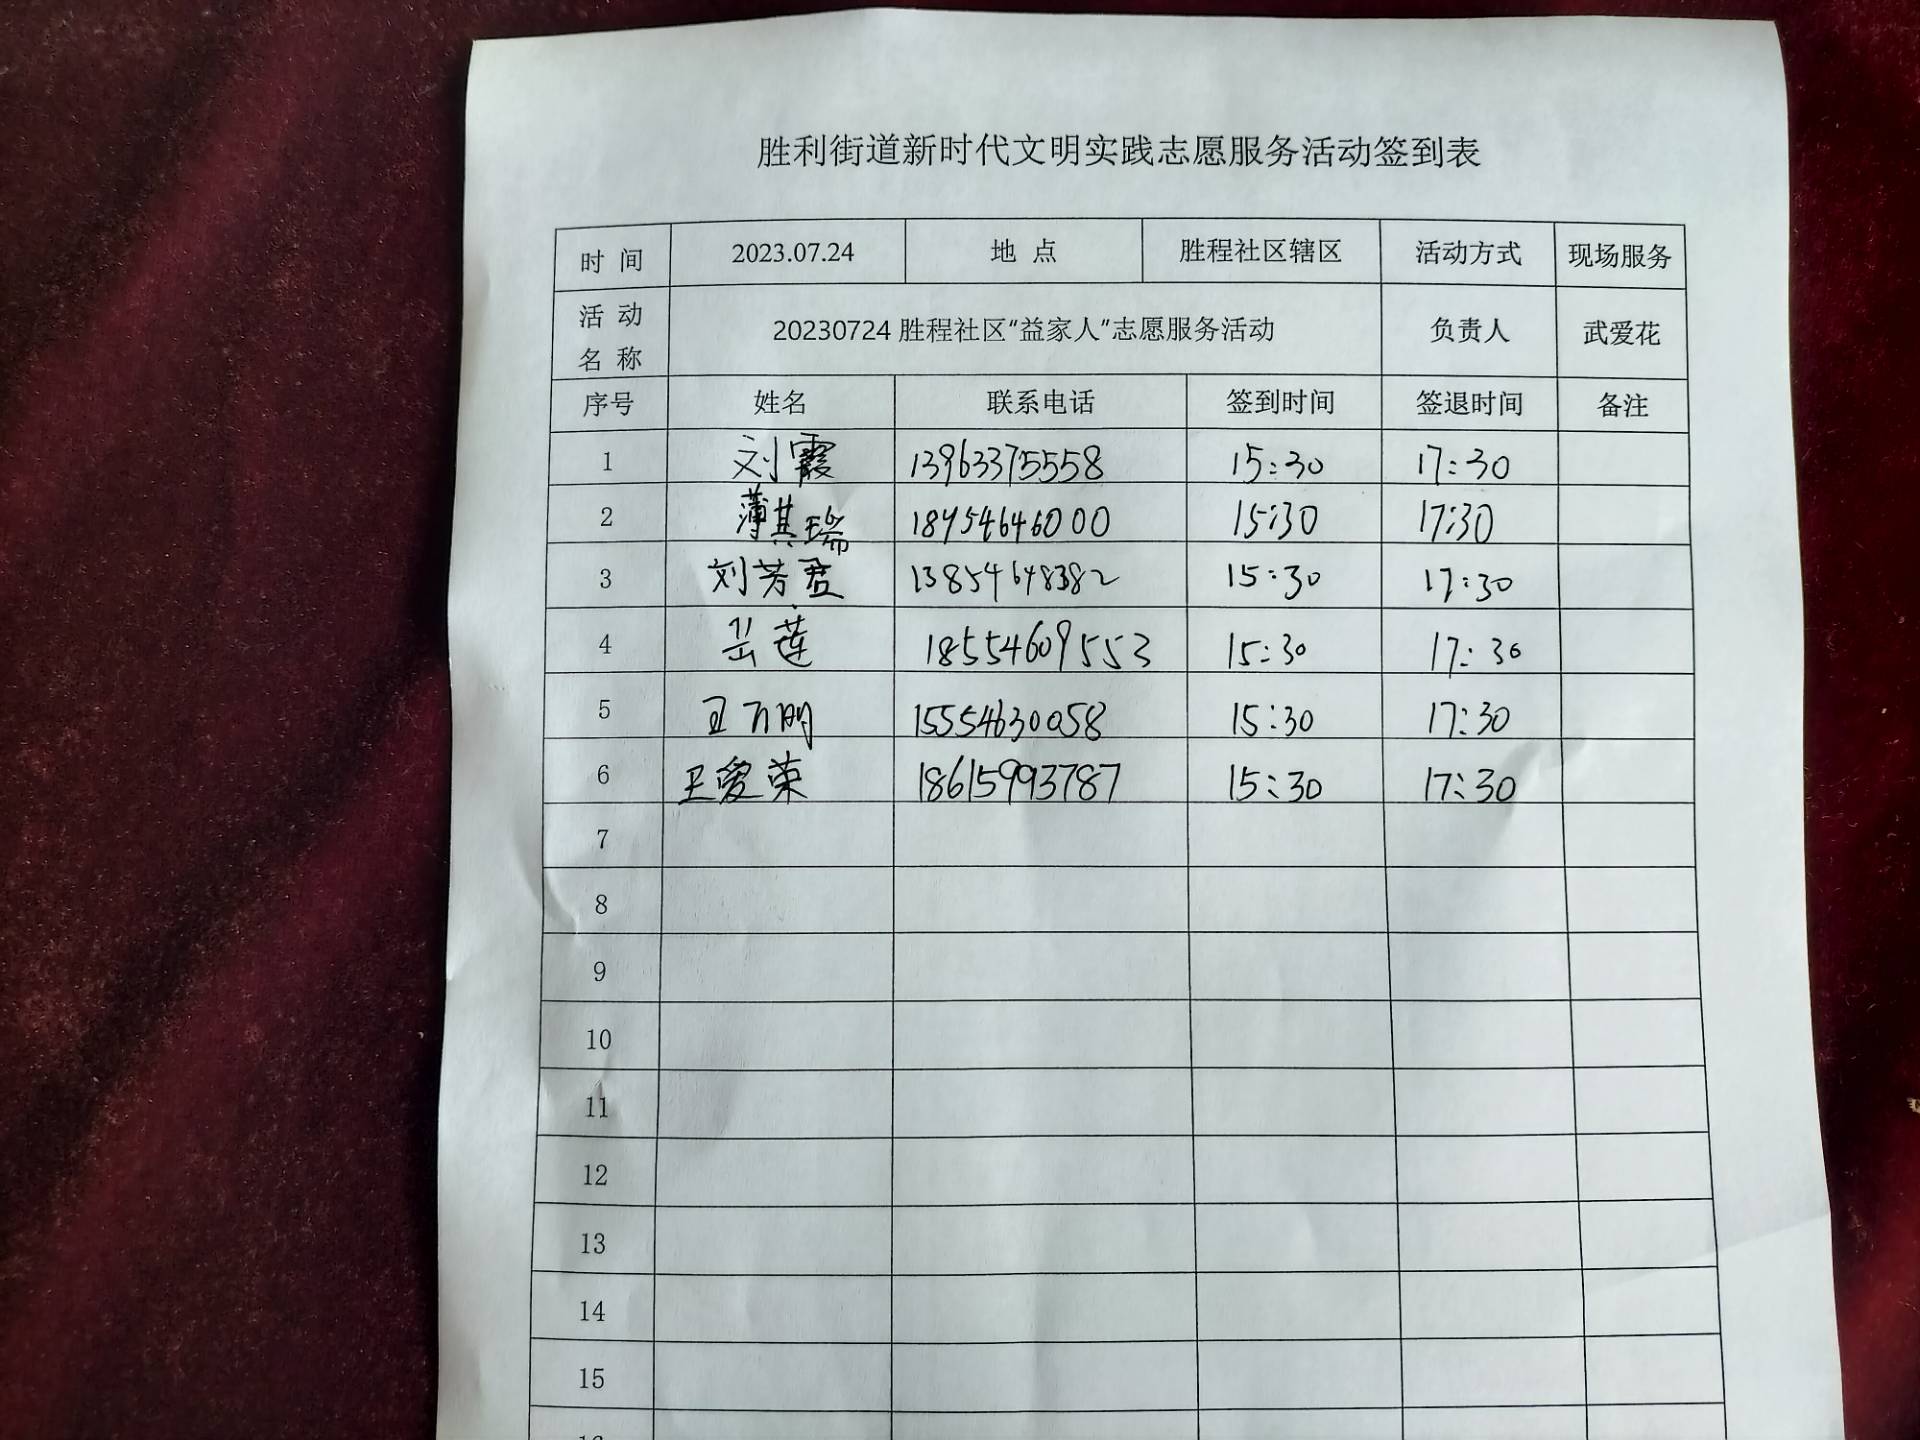 胜利街道新时代文明实践志愿服务活动签到表
时 间 2023.07.24 地 点 胜程社区辖区 活动方式 现场服务
活 动 名 称 20230724 胜程社区“益家人”志愿服务活动 负责人 武爱花
序号 姓名 联系电话 签到时间 签退时间 备注
1 刘霞 13963375558 15:30 17:30
2 薄其瑞 18954646000 15:30 17:30
3 刘芳君 13854648382 15:30 17:30
4 岳莲 18554609553 15:30 17:30
5 王万明 15554630058 15:30 17:30
6 王爱荣 18615993787 15:30 17:30
7
8
9
10
11
12
13
14
15